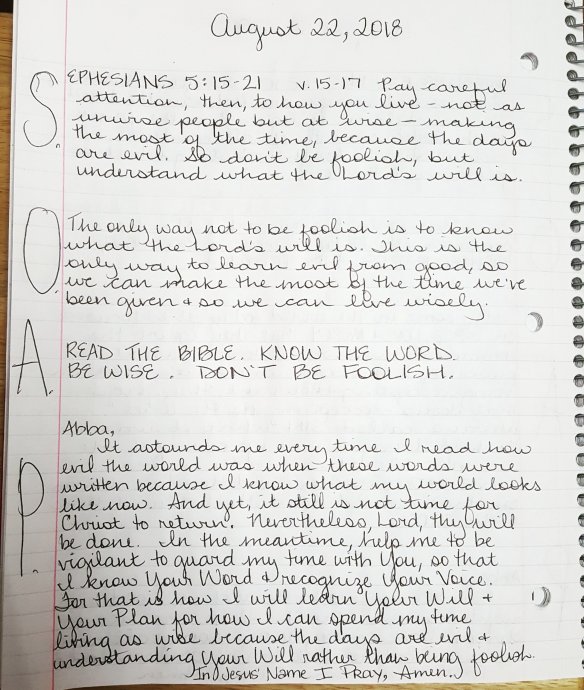 August 22, 2018
S. EPHESIANS 5:15-21 v.15-17 Pay careful
attention, then, to how you live - not as
unwise people but at wise - making
the most of the time, because the days
are evil. So don't be foolish, but
understand what the Lord's will is.
O. The only way not to be foolish is to know
what the Lord's will is. This is the
only way to learn evil from good, so
we can make the most of the time we've
been given + so we can live wisely.
A. READ THE BIBLE. KNOW THE WORD.
BE WISE. DON'T BE FOOLISH.
P. Abba,
It astounds me every time I read how
evil the world was when these words were
written because I know what my world looks
like now. And yet, it still is not time for
Christ to return. Nevertheless, Lord, thy will
be done. In the meantime, help me to be
vigilant to guard my time with You, so that
I know Your Word & recognize Your Voice.
For that is how I will learn Your Will +
Your Plan for how I can spend my time
living as wise because the days are evil +
understanding Your Will rather than being foolish.
In Jesus' Name I Pray, Amen.